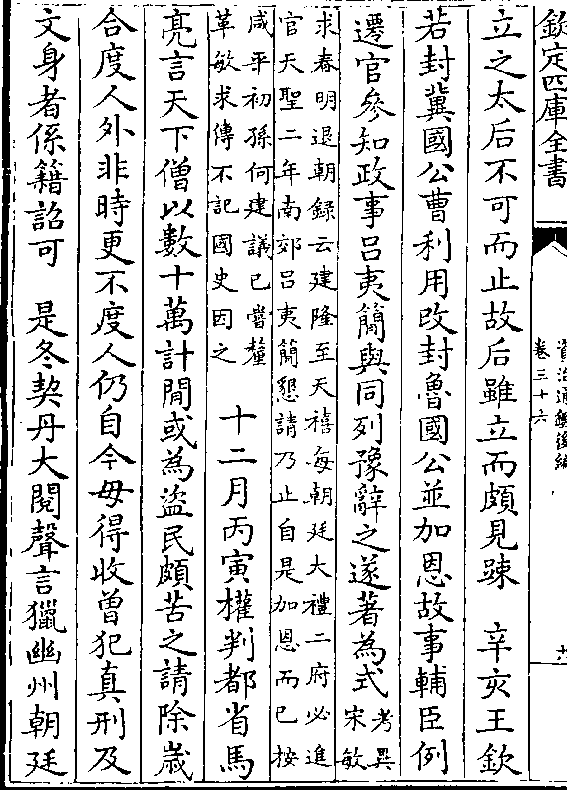 欽定四庫全書
資治通鑑後編
卷三十六
立之太后不可而止故后雖立而頗見踈　辛亥王欽
若封冀國公曹利用改封魯國公並加恩故事輔臣例
遷官參知政事呂夷簡與同列豫辭之遂著為式考異宋敏
求春明退朝錄云建隆至天禧每朝廷大禮二府必進
官天聖二年南郊呂夷簡懇請乃止自是加恩而已按
咸平初孫何建議已嘗釐
革敏求傳不記國史因之
十二月丙寅權判都省馬
亮言天下僧以數十萬計間或為盜民頗苦之請除歲
合度人外非時更不度人仍自今毋得收曾犯真刑及
文身者係籍詔可　是冬契丹大閱聲言獵幽州朝廷